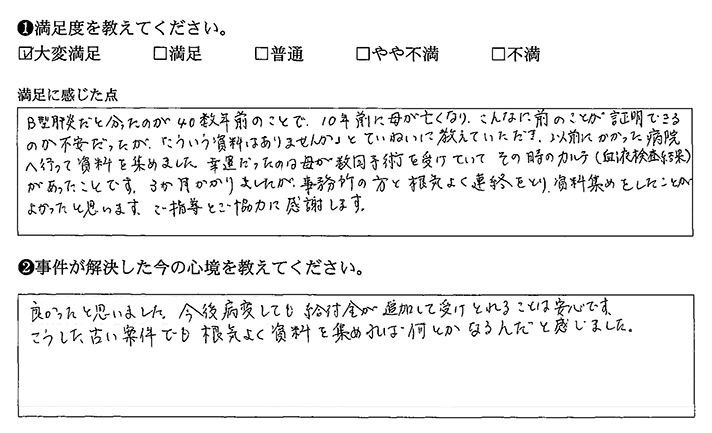 ❶満足度を教えてください。
☑大変満足 □満足 □普通 □やや不満 □不満
満足に感じた点
B型肝炎だと分ったのが40数年前のことで、10年前に母が亡くなり、こんなに前のことが証明できる
のか不安だったが、「こういう資料はありませんか」とていねいに教えていただき、以前にかかった病院
へ行って資料を集めました。幸運だったのは母が数回手術を受けていて その時のカルテ(血液検査結果)
があったことです。3か月かかりましたが、事務所の方と根気よく連絡をとり、資料集めをしたことが
よかったと思います。ご指導とご協力に感謝します。
❷事件が解決した今の心境を教えてください。
良かったと思いました。今後病変しても給付金が追加して受けとれることは安心です。
こうした古い案件でも根気よく資料を集めれば何とかなるんだと感じました。